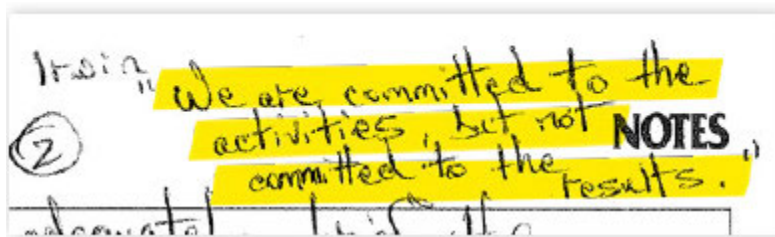 Irwin "We are committed to the
② activities, but not NOTES
committed to the results."